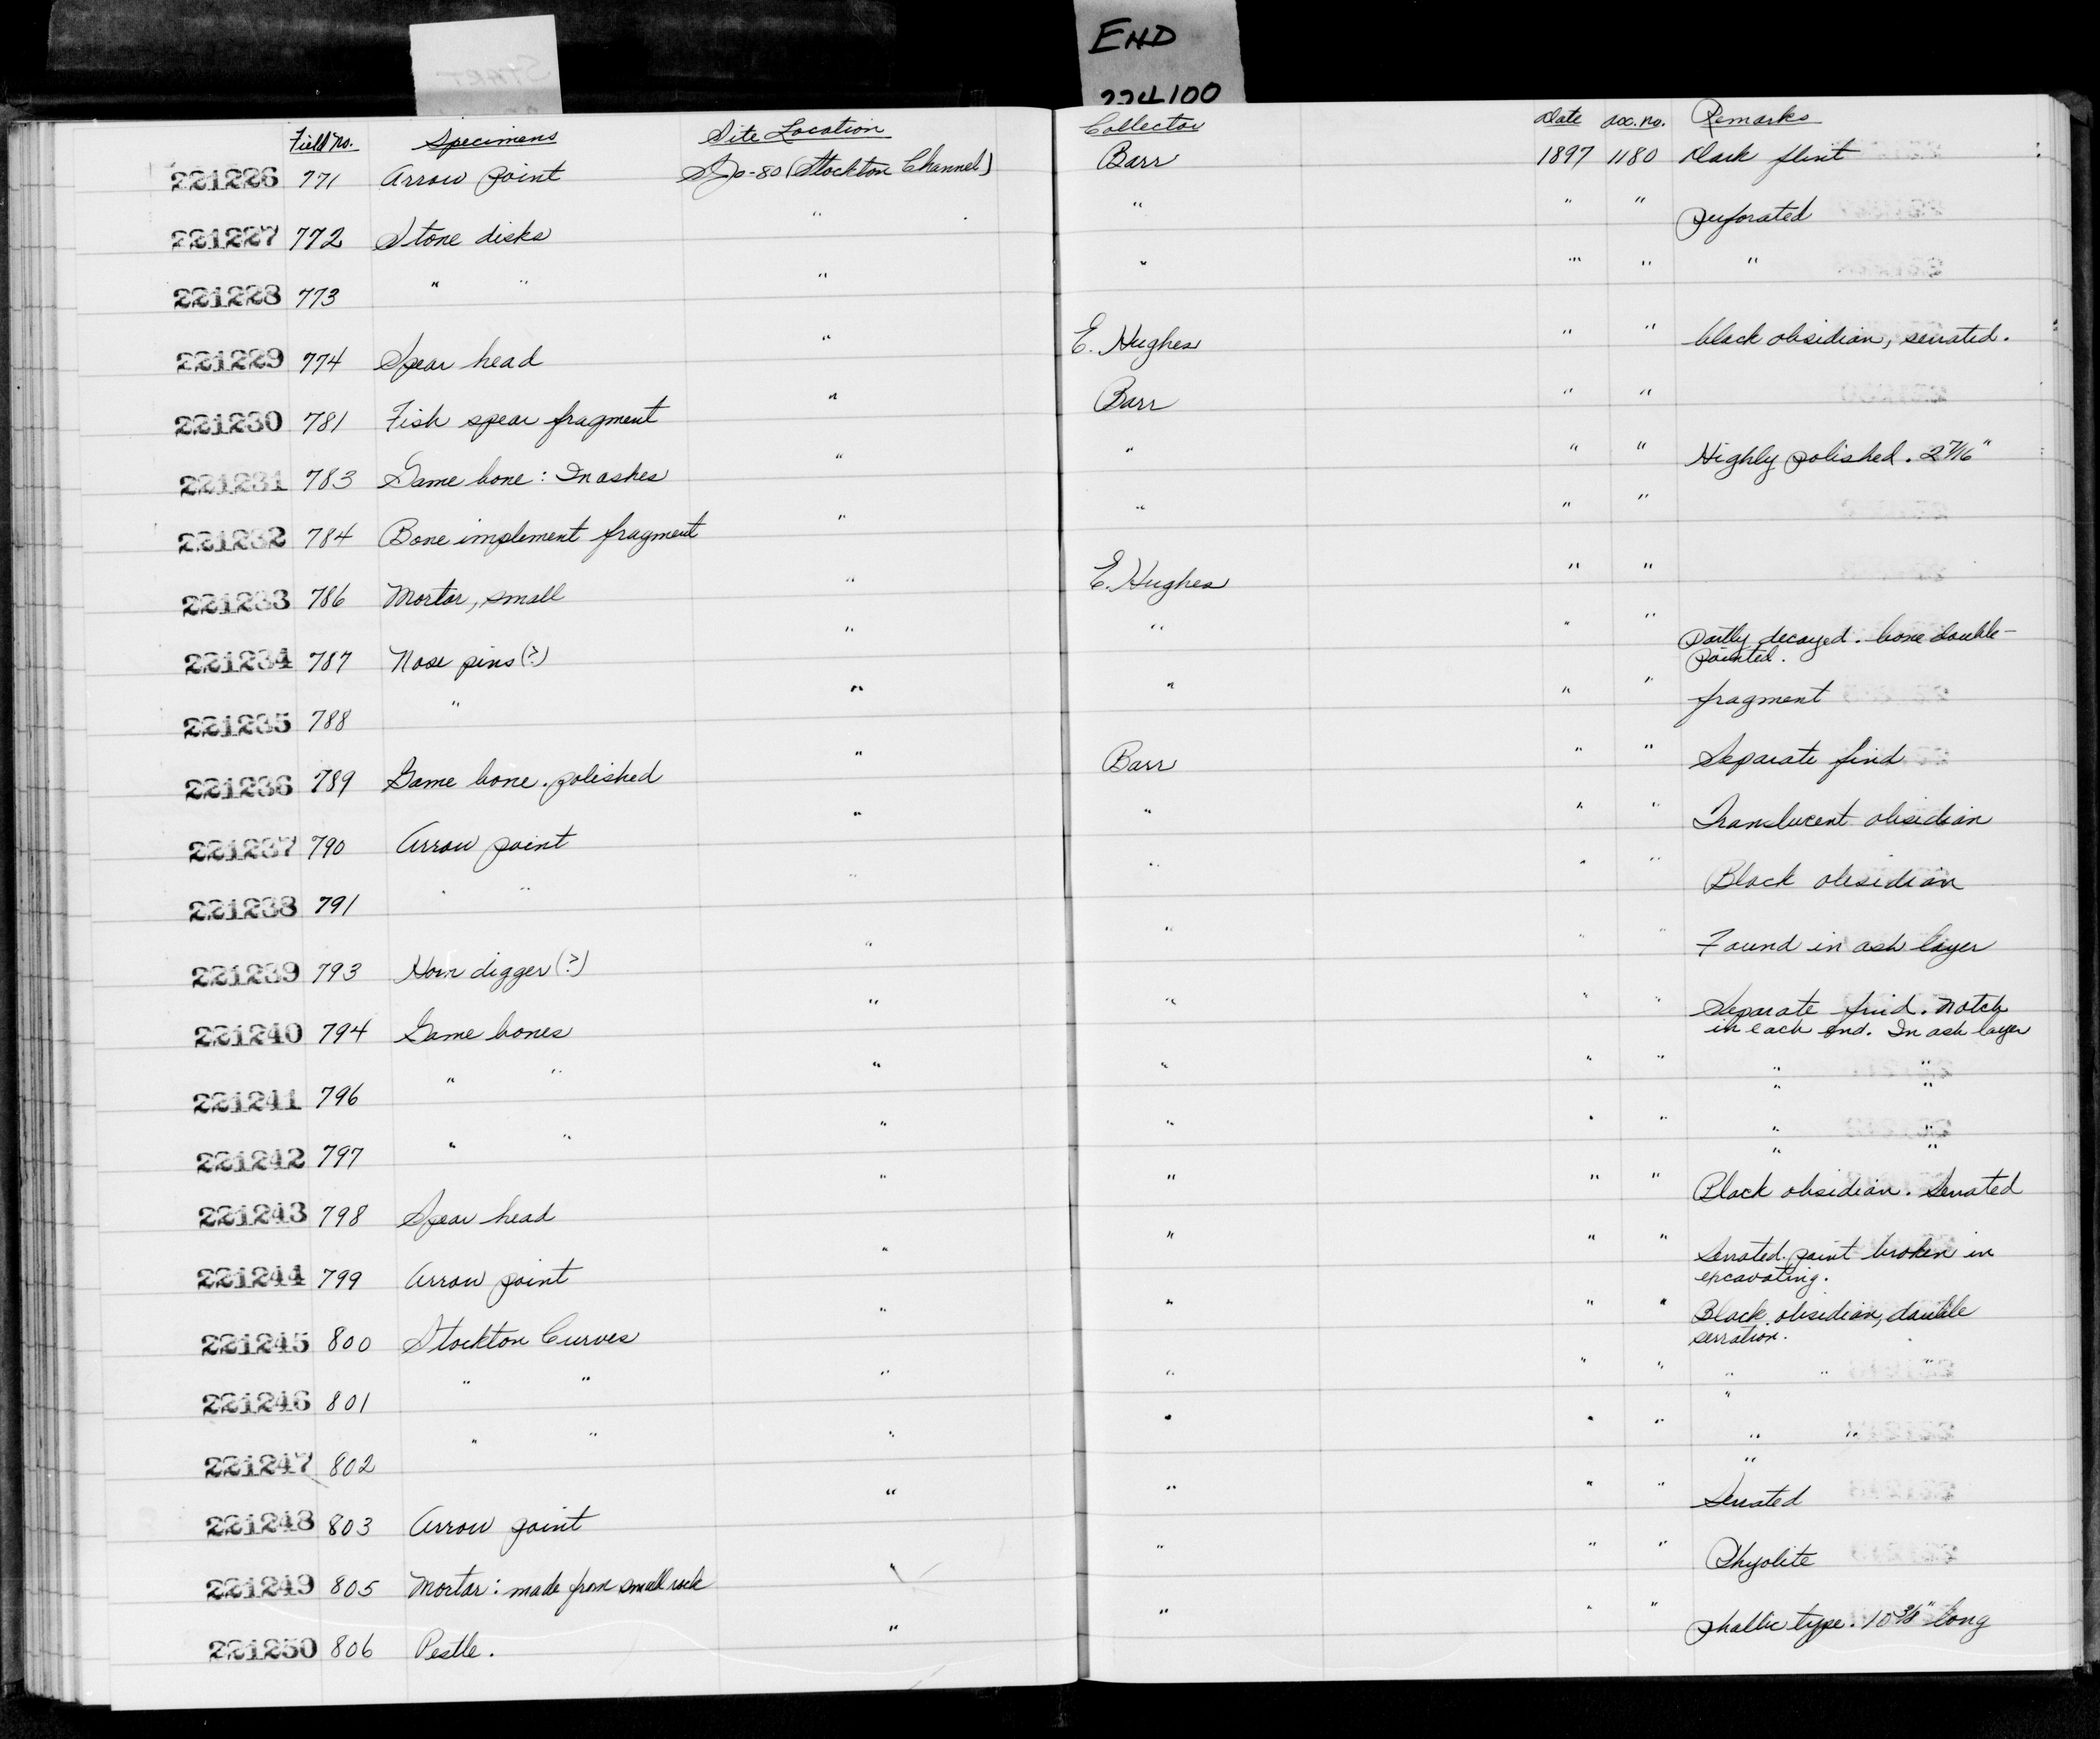 END
224100
START
Field No. Specimens Site Location Collector Date Acc. no. Remarks
221226 771 Arrow point SJo-80 (Stockton Channel) Barr 1897 1180 Dark flint
221227 772 Stone disks " " " " perforated
221228 773 " " " " " " "
221229 774 Spear head " E. Hughes " " black obsidian, serrated.
221230 781 Fish spear fragment " Barr " "
221231 783 Game bone: In ashes " " " " Highly polished. 2 7/16"
221232 784 Bone implement fragment " " " "
221233 786 Mortar, small " E. Hughes " "
221234 787 Nose pins (?) " " " " Partly decayed. bone double-
pointed.
221235 788 " " " " " fragment
221236 789 Game bone. polished " Barr " " Separate find
221237 790 Arrow point " " " " Translucent obsidian
221238 791 " " " " " " Black obsidian
221239 793 Horn digger (?) " " " " Found in ash layer
221240 794 Game bones " " " " Separate find. Notch
in each end. In ash layer
221241 796 " " " " " " " "
" "
221242 797 " " " " " " " "
" "
221243 798 Spear head " " " " Black obsidian. Serrated
221244 799 Arrow point " " " " Serrated. point broken in
excavating.
221245 800 Stockton Curves " " " " Black obsidian, double
serration.
221246 801 " " " " " " " " "
"
221247 802 " " " " " " " "
"
221248 803 Arrow point " " " " Serrated
221249 805 Mortar: made from small rock " " " " Rhyolite
221250 806 Pestle. " " " " phallic type. 10 3/8" long